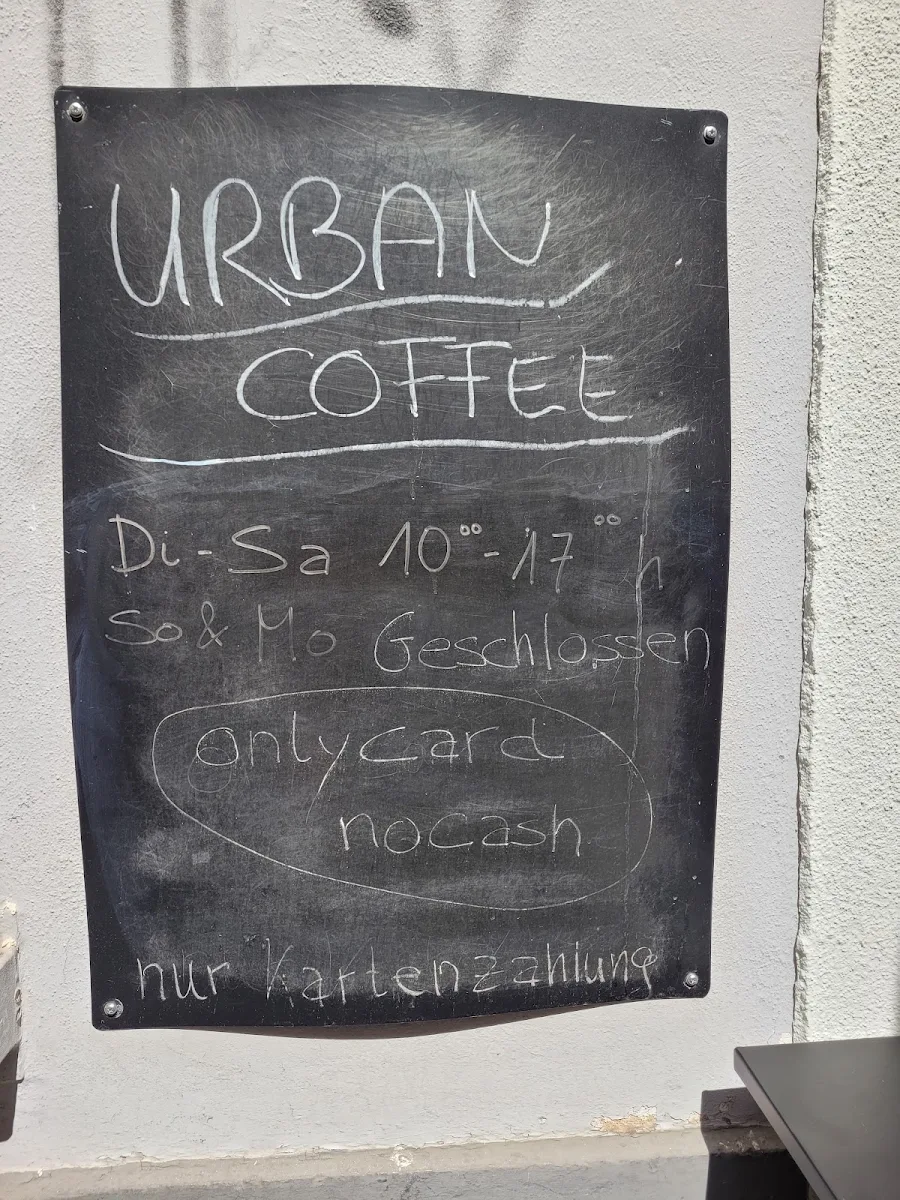 URBAN
COFFEE
Di-Sa 10⁰⁰-17⁰⁰ h
So & Mo Geschlossen
only card
no cash
nur Kartenzahlung